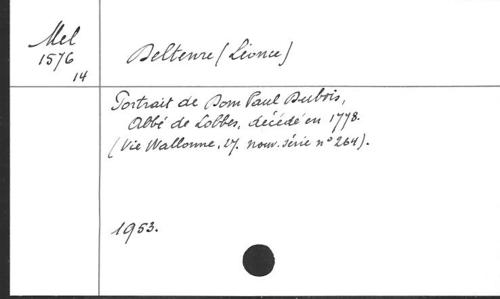 Mel
1576
14
Deltenre (Léonce)
Portrait de Dom Paul Dubois,
Abbé de Lobbes, décédé en 1778.
(Vie Wallonne, 27. nouv. série n° 264).
1953.